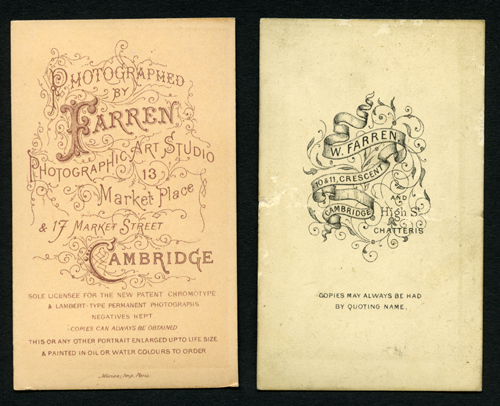 PHOTOGRAPHED
BY
FARREN
PHOTOGRAPHIC ART STUDIO
13
Market Place
& 17 MARKET STREET
CAMBRIDGE
SOLE LICENSEE FOR THE NEW PATENT CHROMOTYPE
& LAMBERT-TYPE PERMANENT PHOTOGRAPHS
NEGATIVES KEPT
COPIES CAN ALWAYS BE OBTAINED
THIS OR ANY OTHER PORTRAIT ENLARGED UP TO LIFE SIZE
& PAINTED IN OIL OR WATER COLOURS TO ORDER
Imp. Paris
W. FARREN
10 & 11, CRESCENT
CAMBRIDGE
AND
High St.
CHATTERIS
COPIES MAY ALWAYS BE HAD
BY QUOTING NAME.